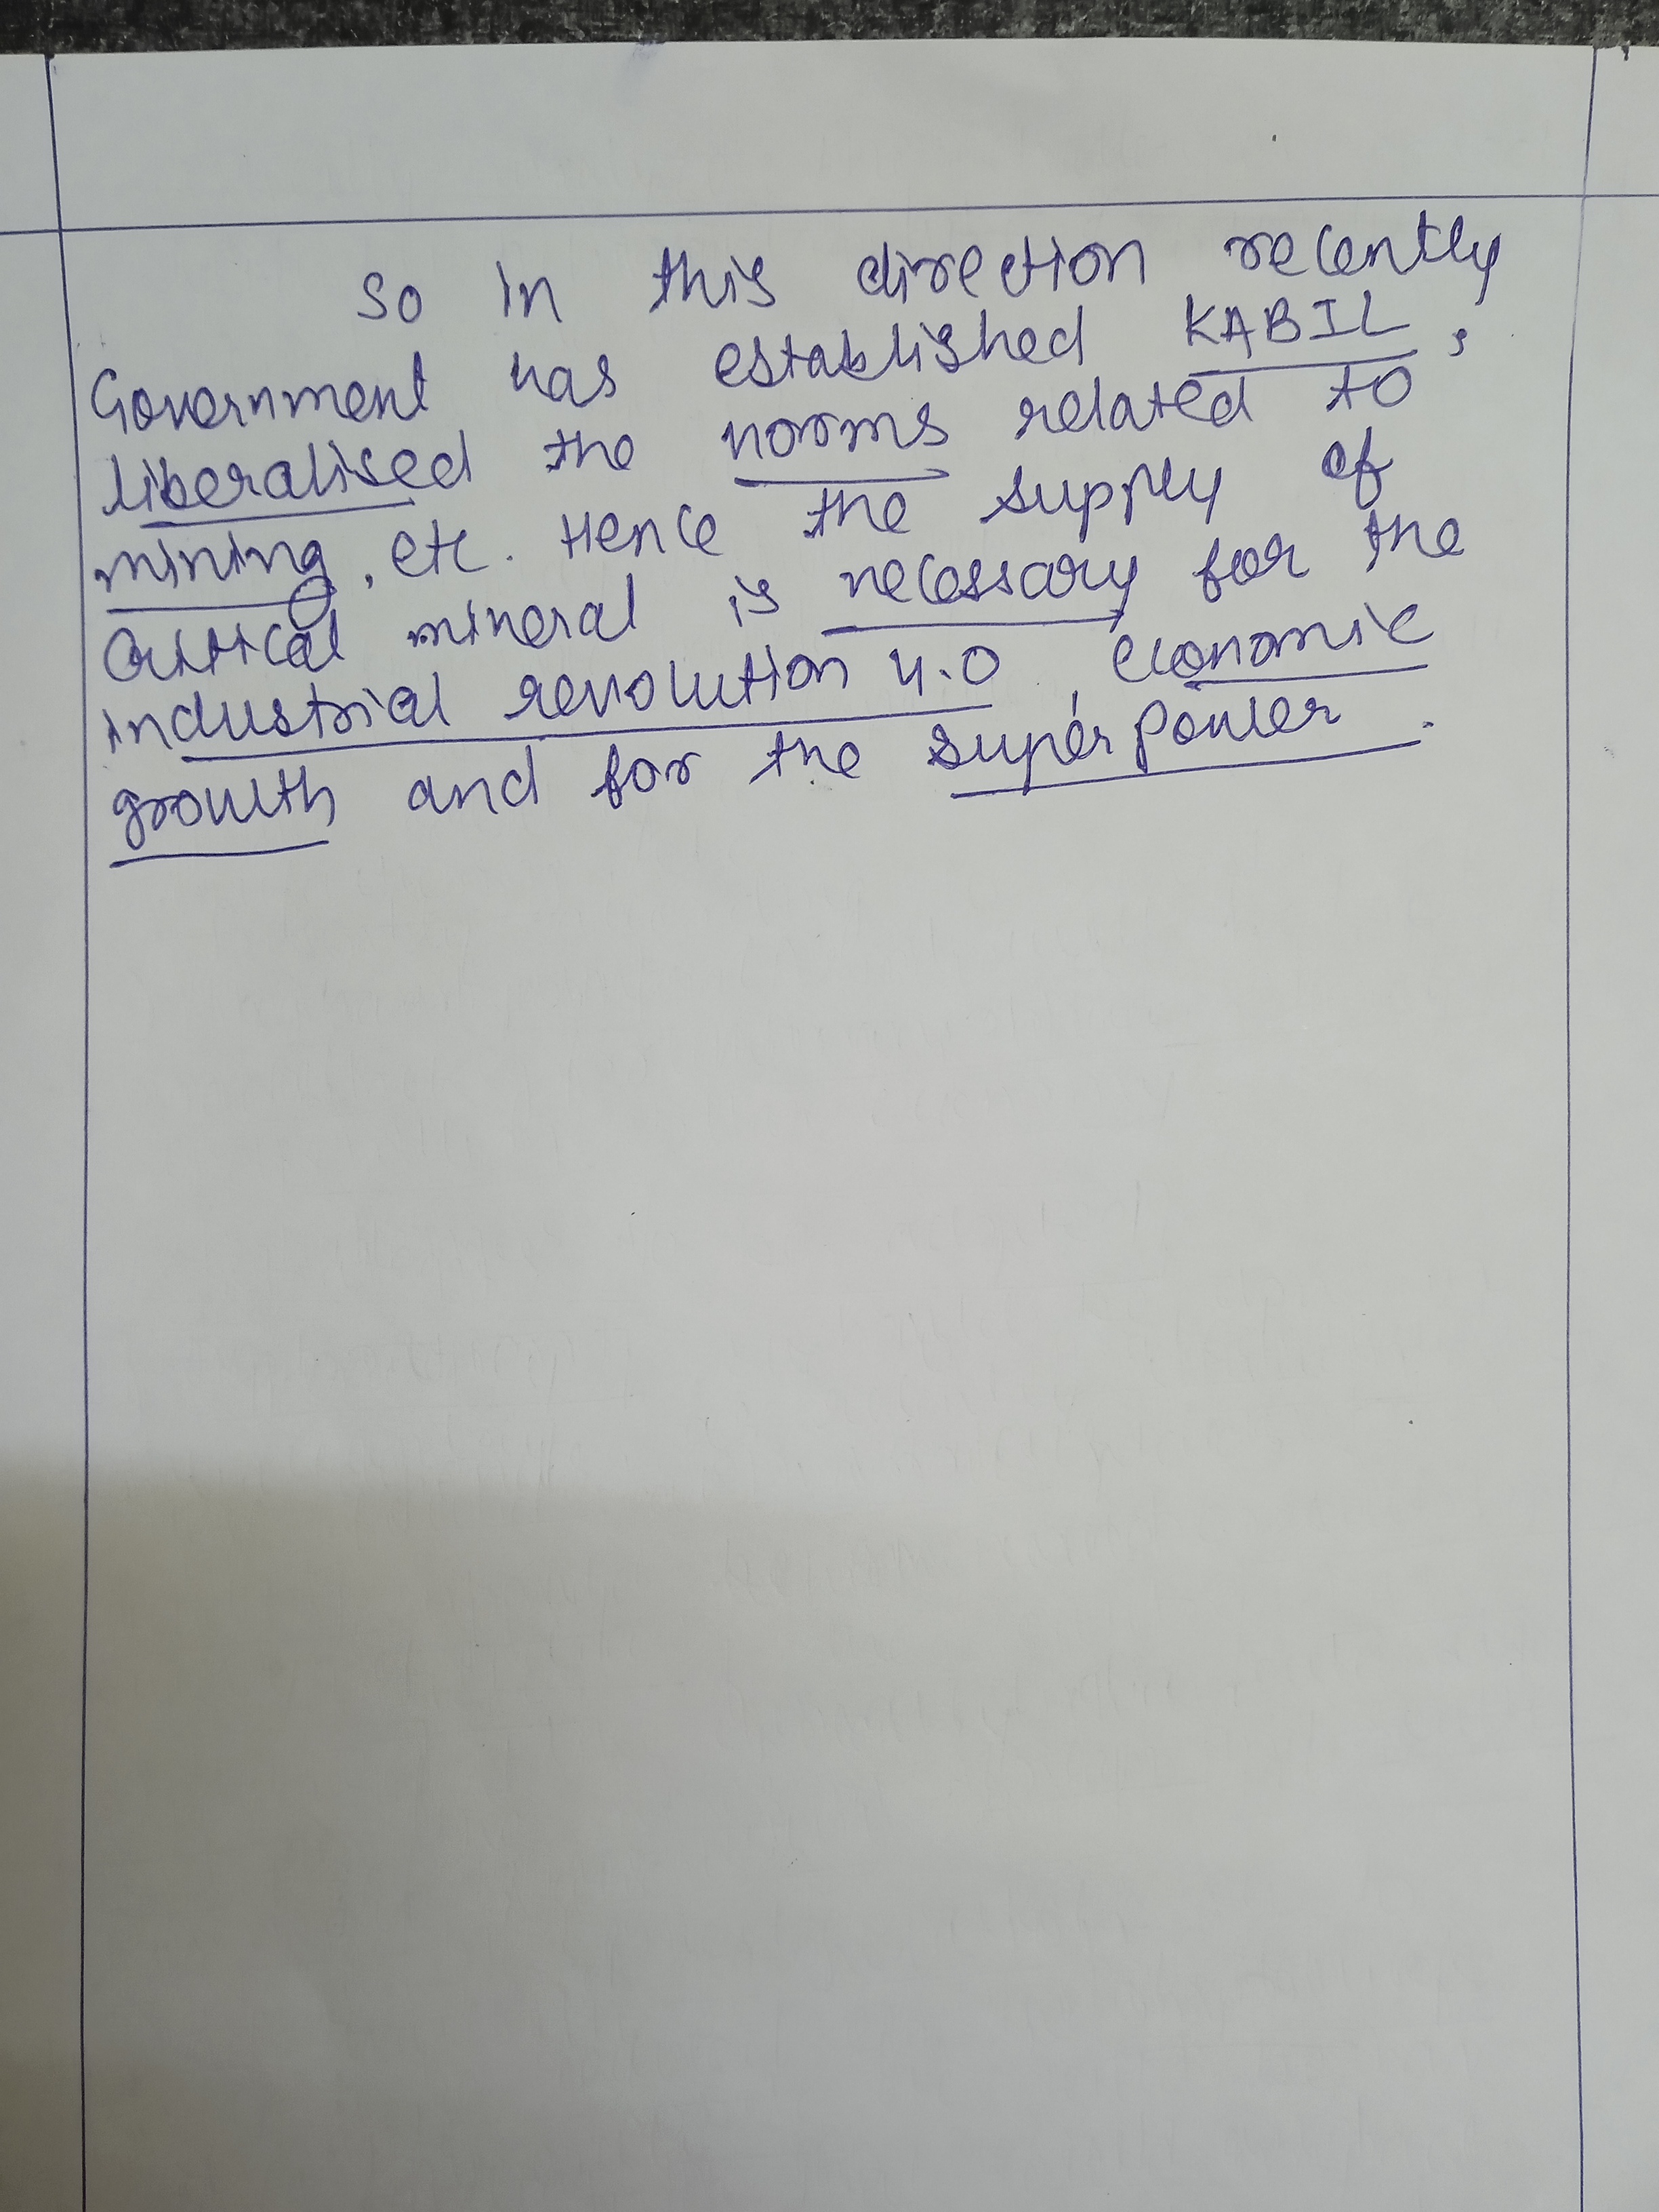 So in this direction recently
Government has established KABIL,
liberalised the norms related to
mining, etc. Hence the supply of
critical mineral is necessary for the
industrial revolution 4.0, economic
growth and for the super power.